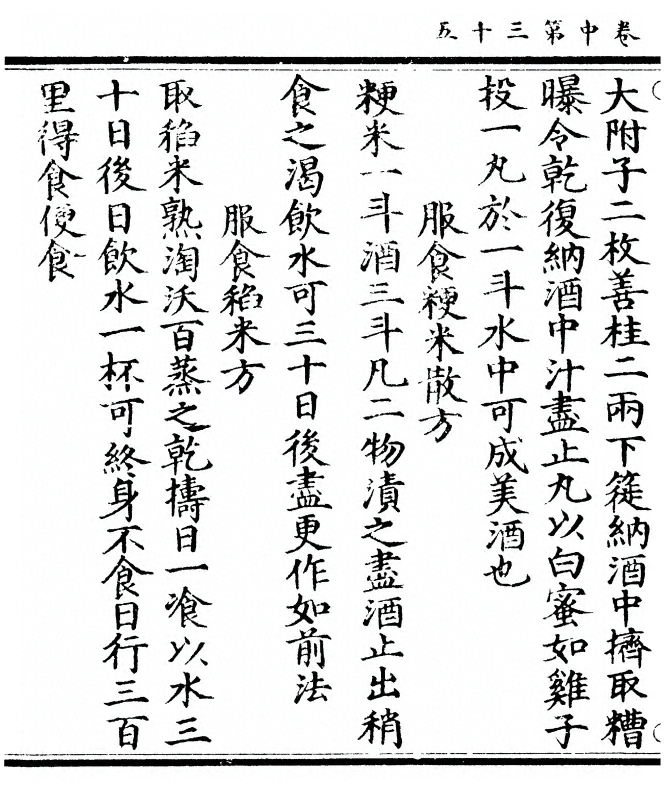 卷中第三十五
大附子二枚善桂二兩下簁納酒中擠取糟
曝令乾復納酒中汁盡止丸以白蜜如雞子
投一丸於一斗水中可成美酒也
服食粳米散方
粳米一斗酒三斗凡二物漬之盡酒止出稍
食之渴飲水可三十日後盡更作如前法
服食稻米方
取稻米熟淘沃百蒸之乾擣日一飡以水三
十日後日飲水一杯可終身不食日行三百
里得食便食